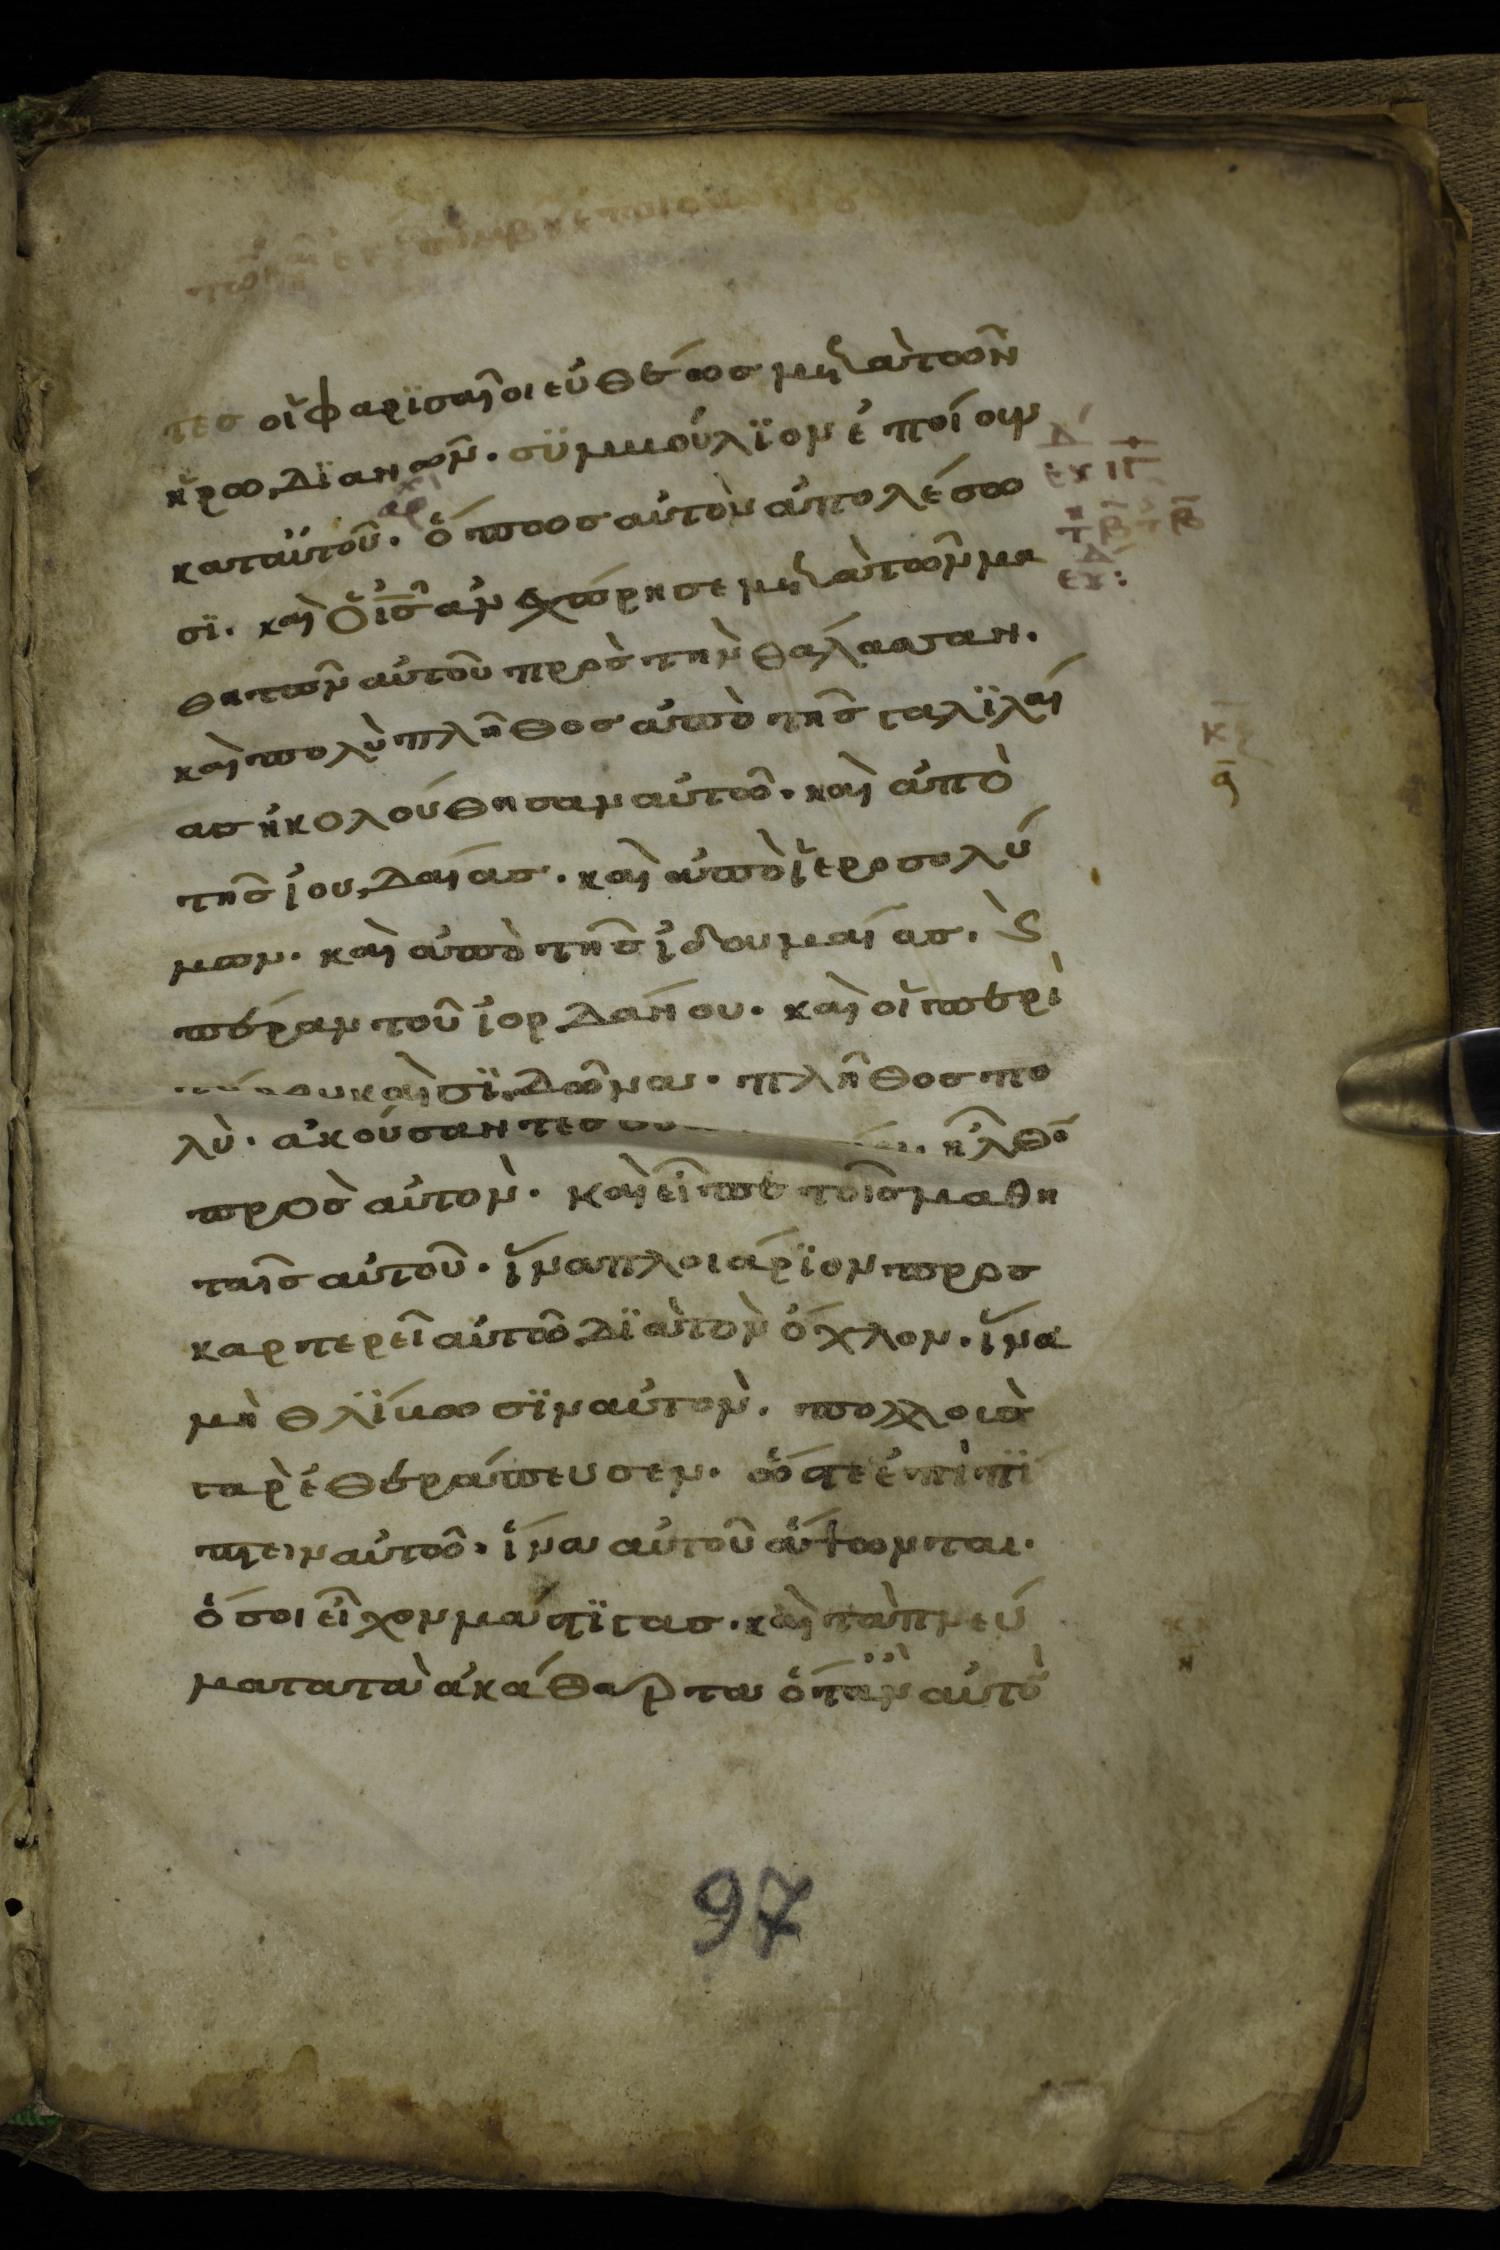 τες οἱ φαρϊσαῖοι εὐθέως μετὰ τῶν
ἡρωδϊανῶν. συμβούλϊον ἐποίουν
κατ αὐτοῦ. ὅπως αὐτὸν ἀπολέσω
σϊ. καὶ ὁ ἰς̄ ἀνεχώρησε μετὰ τῶν μα
θητῶν αὐτοῦ πρὸς τὴν θάλασσαν.
καὶ πολὺ πλῆθος ἀπὸ τῆς γαλϊλαί
ας ἠκολούθησαν αὐτῶ. καὶ ἀπὸ
τῆς ἰουδαίας. καὶ ἀπὸ ἱεροσολύ
μων. καὶ ἀπὸ τῆς ἰδουμαίας. ϗ
πέραν τοῦ ἰορδάνου. καὶ οἱ περὶ
καὶ σϊδῶνα. πλῆθος πο
λὺ. ἀκούσαντες ἦλθο
πρὸς αὐτὸν. καὶ εἶπε τοῖς μαθη
ταῖς αὐτοῦ. ἵνα πλοιάρϊον προσ
καρτερεῖ αὐτῶ δϊὰ τὸν ὄχλον. ἵνα
μὴ θλϊβωσϊν αὐτὸν. πολλοὺς
γὰρ ἐθεράπευσεν. ὥστε ἐπιπϊ
πτειν αὐτῶ. ἵνα αὐτοῦ ἅψωνται.
ὅσοι εἶχον μάστϊγας. καὶ τὰ πνεύ
ματα τὰ ἀκάθαρτα ὅτὰν αὐτὸ
97